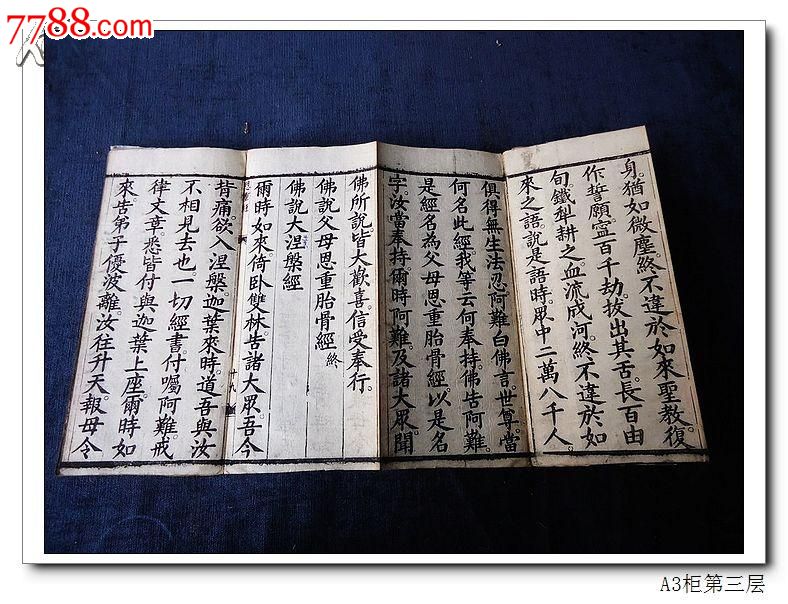 7788.com
身。猶如微塵。終不違於如來聖教。復
作誓願。寧百千劫。拔出其舌。長百由
旬。鐵犁耕之。血流成河。終不違於如
來之語。說是語時。眾中二萬八千人。
俱得無生法忍。阿難白佛言。世尊。當
何名此經。我等云何奉持。佛告阿難。
是經名為父母恩重胎骨經。以是名
字。汝當奉持。爾時阿難。及諸大眾。聞
佛所說。皆大歡喜。信受奉行。
佛說父母恩重胎骨經 終
佛說大涅槃經
爾時如來。倚臥雙林。告諸大眾。吾今
十八
背痛。欲入涅槃。迦葉來時。道吾與汝
不相見去也。一切經書。付囑阿難。戒
律文章。悉皆付與迦葉上座。爾時如
來。告弟子優波離。汝往升天。報母令
A3柜第三层